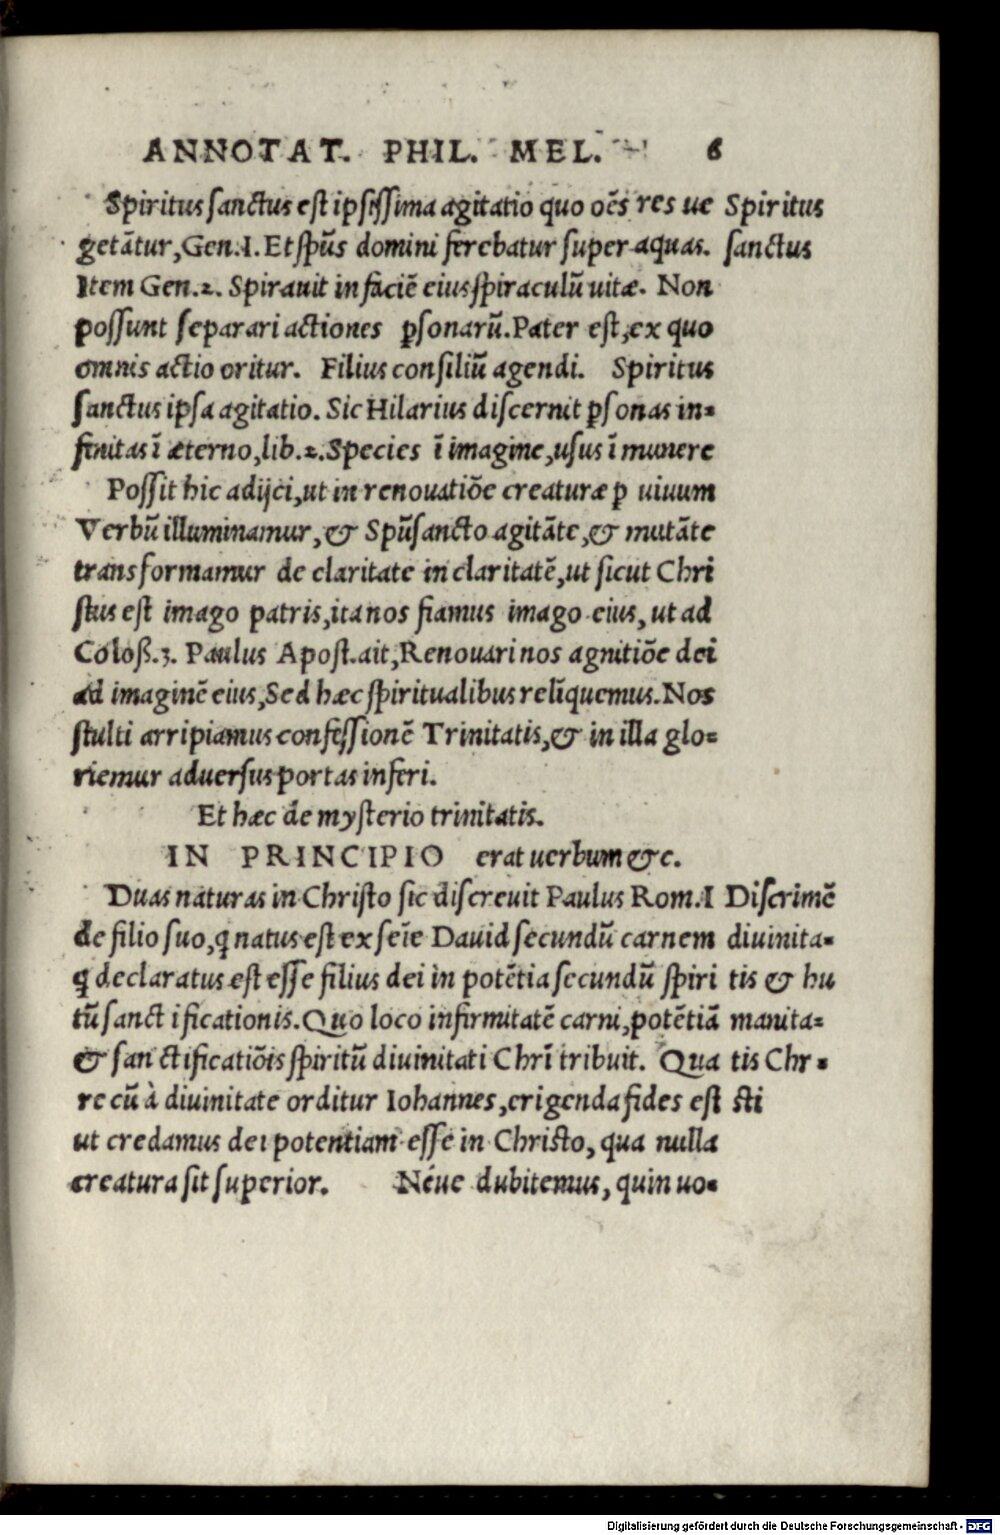 ANNOTAT. PHIL. MEL. 6
Spiritus sanctus est ipsissima agitatio quo oēs res ue
getātur, Gen.1. Et spūs domini ferebatur super aquas.
Item Gen.2. Spirauit in faciē eius spiraculū uitæ. Non
possunt separari actiones ꝑsonarū. Pater est, ex quo
omnis actio oritur. Filius consiliū agendi. Spiritus
sanctus ipsa agitatio. Sic Hilarius discernit ꝑsonas in-
finitas ī æterno, lib.2. Species ī imagine, usus ī munere
Possit hic adijci, ut in renouatiōe creaturæ ꝑ uiuum
Verbū illuminamur, & Spūsancto agitāte, & mutāte
transformamur de claritate in claritatē, ut sicut Chri
stus est imago patris, ita nos fiamus imago eius, ut ad
Coloß.3. Paulus Apost. ait, Renouari nos agnitiōe dei
ad imaginē eius, Sed hæc spiritualibus relīquemus. Nos
stulti arripiamus confessionē Trinitatis, & in illa glo-
riemur aduersus portas inferi.
Et hæc de mysterio trinitatis.
IN PRINCIPIO erat uerbum &c.
Duas naturas in Christo sic discreuit Paulus Rom.1
de filio suo, ꝗ natus est ex seīe Dauid secundū carnem
ꝗ declaratus est esse filius dei in potētia secundū spiri
tū sanctificationis. Quo loco infirmitatē carni, potētiā
& sanctificatiōis spiritū diuinitati Chrī tribuit. Qua
re cū à diuinitate orditur Iohannes, erigenda fides est
ut credamus dei potentiam esse in Christo, qua nulla
creatura sit superior. Néue dubitemus, quin uo-
Spiritus
sanctus
Discrimē
diuinita-
tis & hu
manita-
tis Chr-
sti
Digitalisierung gefördert durch die Deutsche Forschungsgemeinschaft - DFG